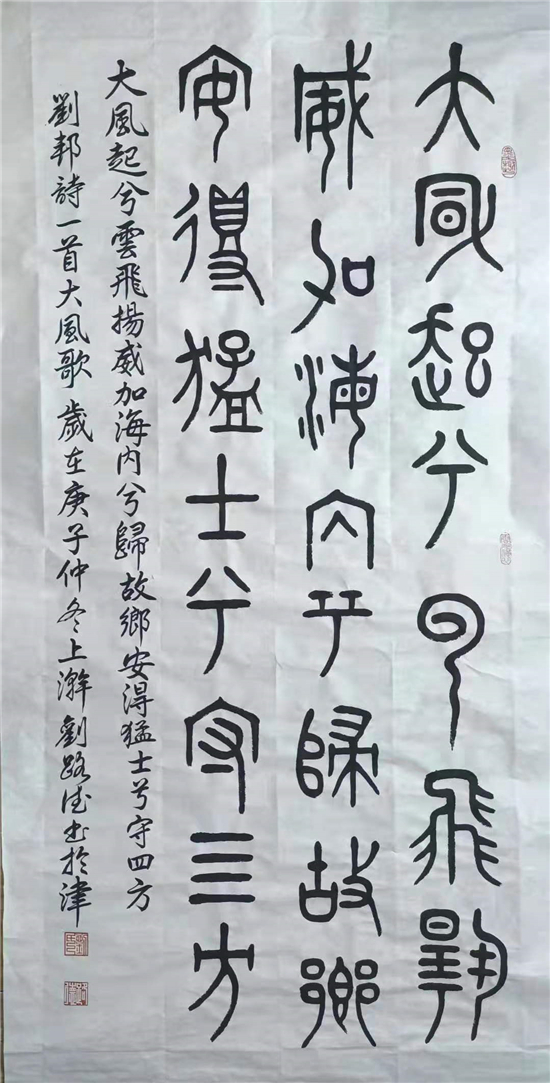 大風起兮雲飛揚
威加海内兮歸故鄉
安得猛士兮守四方
大風起兮雲飛揚威加海内兮歸故鄉安得猛士兮守四方
劉邦詩一首大風歌歲在庚子仲冬上澣劉路德書於津